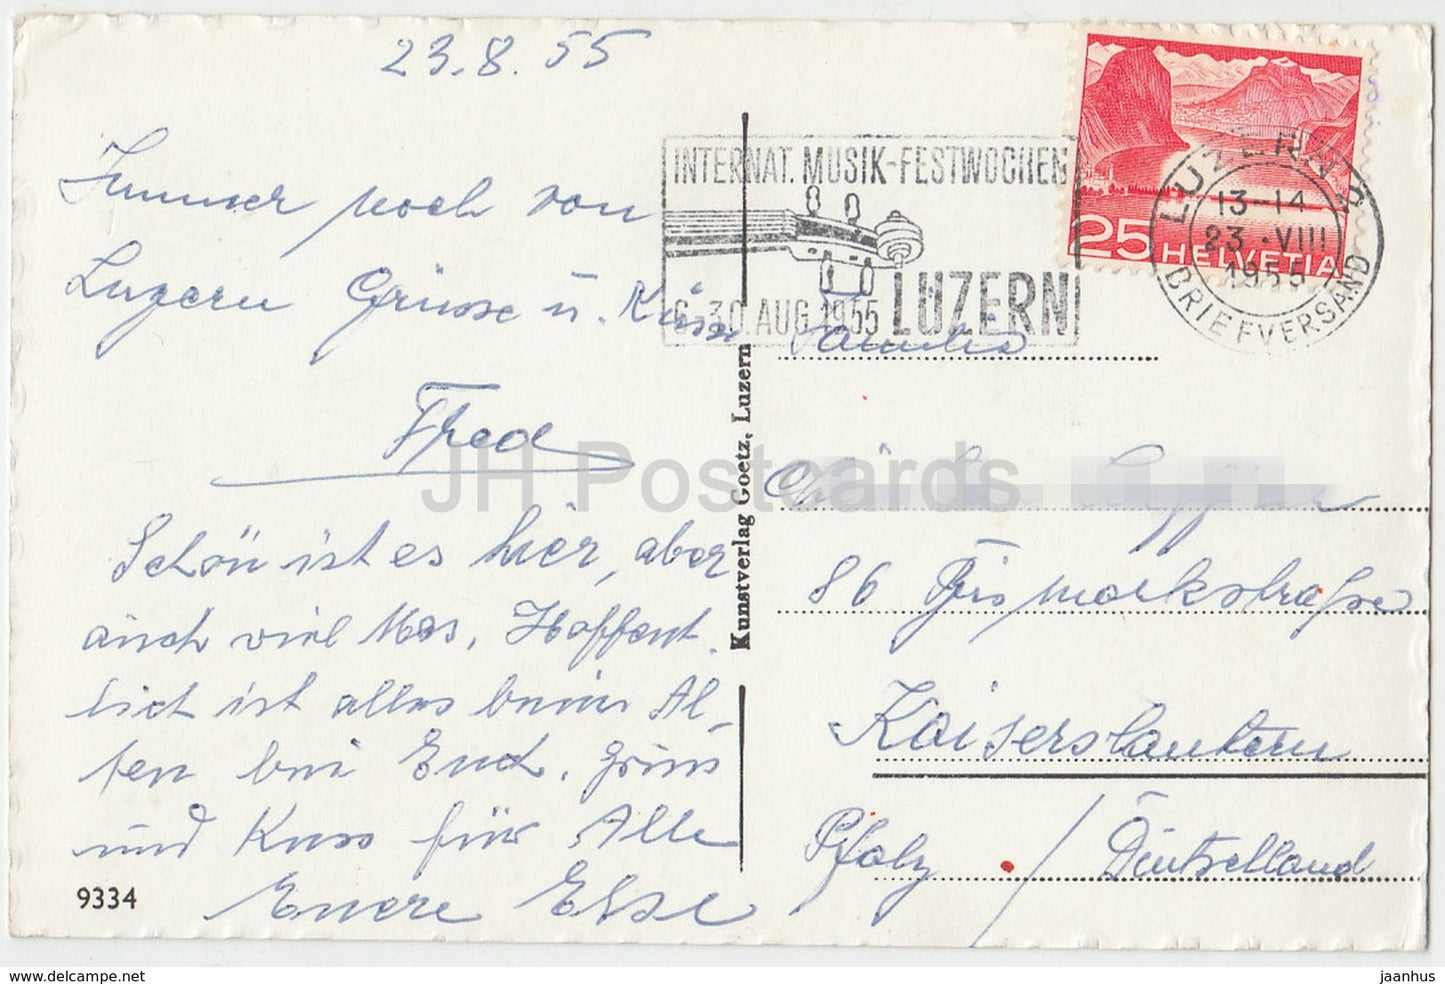 23.8.55
Immer noch von
Luzern Grüsse u. Küsse
Fred
Schön ist es hier, aber
auch viel Mos. Hoffent.
lich ist alles beim Al-
ten bei Euch. Grüss
und Kuss für Alle
Euere Else
9334
Kunstverlag Goetz, Luzern
INTERNAT. MUSIK-FESTWOCHEN
6.-30. AUG. 1955 LUZERN
25 HELVETIA
LUZERN 2
13-14
23.VIII
1955
BRIEFVERSAND
Familie
86 Bismarkstraße
Kaiserslautern
Pfalz / Deutschland
JH Postcards
www.delcampe.net
jaanhus